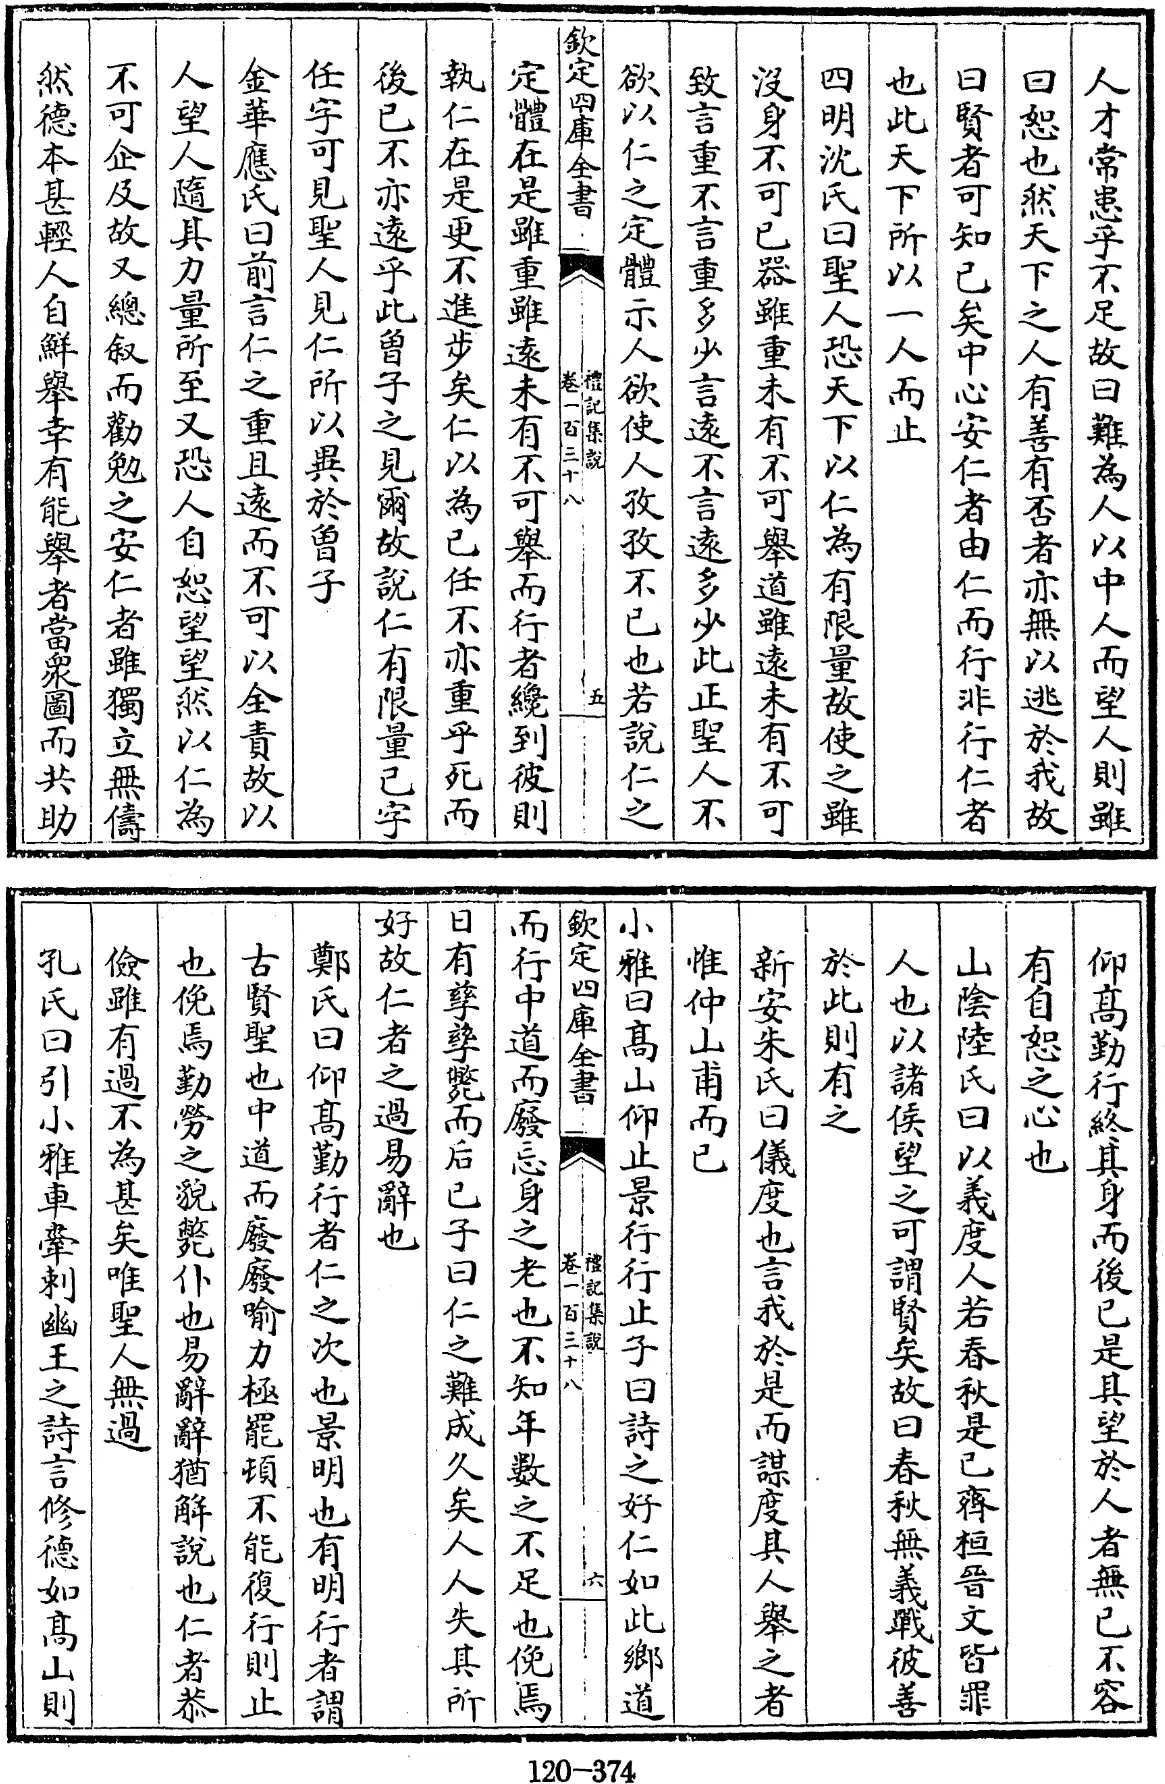 人才常患乎不足故曰難為人以中人而望人則雖
曰恕也然天下之人有善有否者亦無以逃於我故
曰賢者可知已矣中心安仁者由仁而行非行仁者
也此天下所以一人而止
四明沈氏曰聖人恐天下以仁為有限量故使之雖
沒身不可已器雖重未有不可舉道雖遠未有不可
致言重不言重多少言遠不言遠多少此正聖人不
欲以仁之定體示人欲使人孜孜不已也若說仁之
欽定四庫全書
禮記集說
卷一百三十八
五
定體在是雖重雖遠未有不可舉而行者纔到彼則
執仁在是更不進步矣仁以為已任不亦重乎死而
後已不亦遠乎此曾子之見爾故說仁有限量已字
任字可見聖人見仁所以異於曾子
金華應氏曰前言仁之重且遠而不可以全責故以
人望人隨其力量所至又恐人自恕望望然以仁為
不可企及故又總叙而勸勉之安仁者雖獨立無儔
然德本甚輕人自鮮舉幸有能舉者當衆圖而共助
仰髙勤行終其身而後已是其望於人者無已不容
有自恕之心也
山隂陸氏曰以義度人若春秋是已齊桓晉文皆罪
人也以諸侯望之可謂賢矣故曰春秋無義戰彼善
於此則有之
新安朱氏曰儀度也言我於是而謀度其人舉之者
惟仲山甫而已
小雅曰髙山仰止景行行止子曰詩之好仁如此鄉道
欽定四庫全書
禮記集說
卷一百三十八
六
而行中道而廢忘身之老也不知年數之不足也俛焉
日有孳孳斃而后已子曰仁之難成久矣人人失其所
好故仁者之過易辭也
鄭氏曰仰髙勤行者仁之次也景明也有明行者謂
古賢聖也中道而廢廢喻力極罷頓不能復行則止
也俛焉勤勞之貌斃仆也易辭辭猶解說也仁者恭
儉雖有過不為甚矣唯聖人無過
孔氏曰引小雅車舝刺幽王之詩言修德如髙山則
120-374